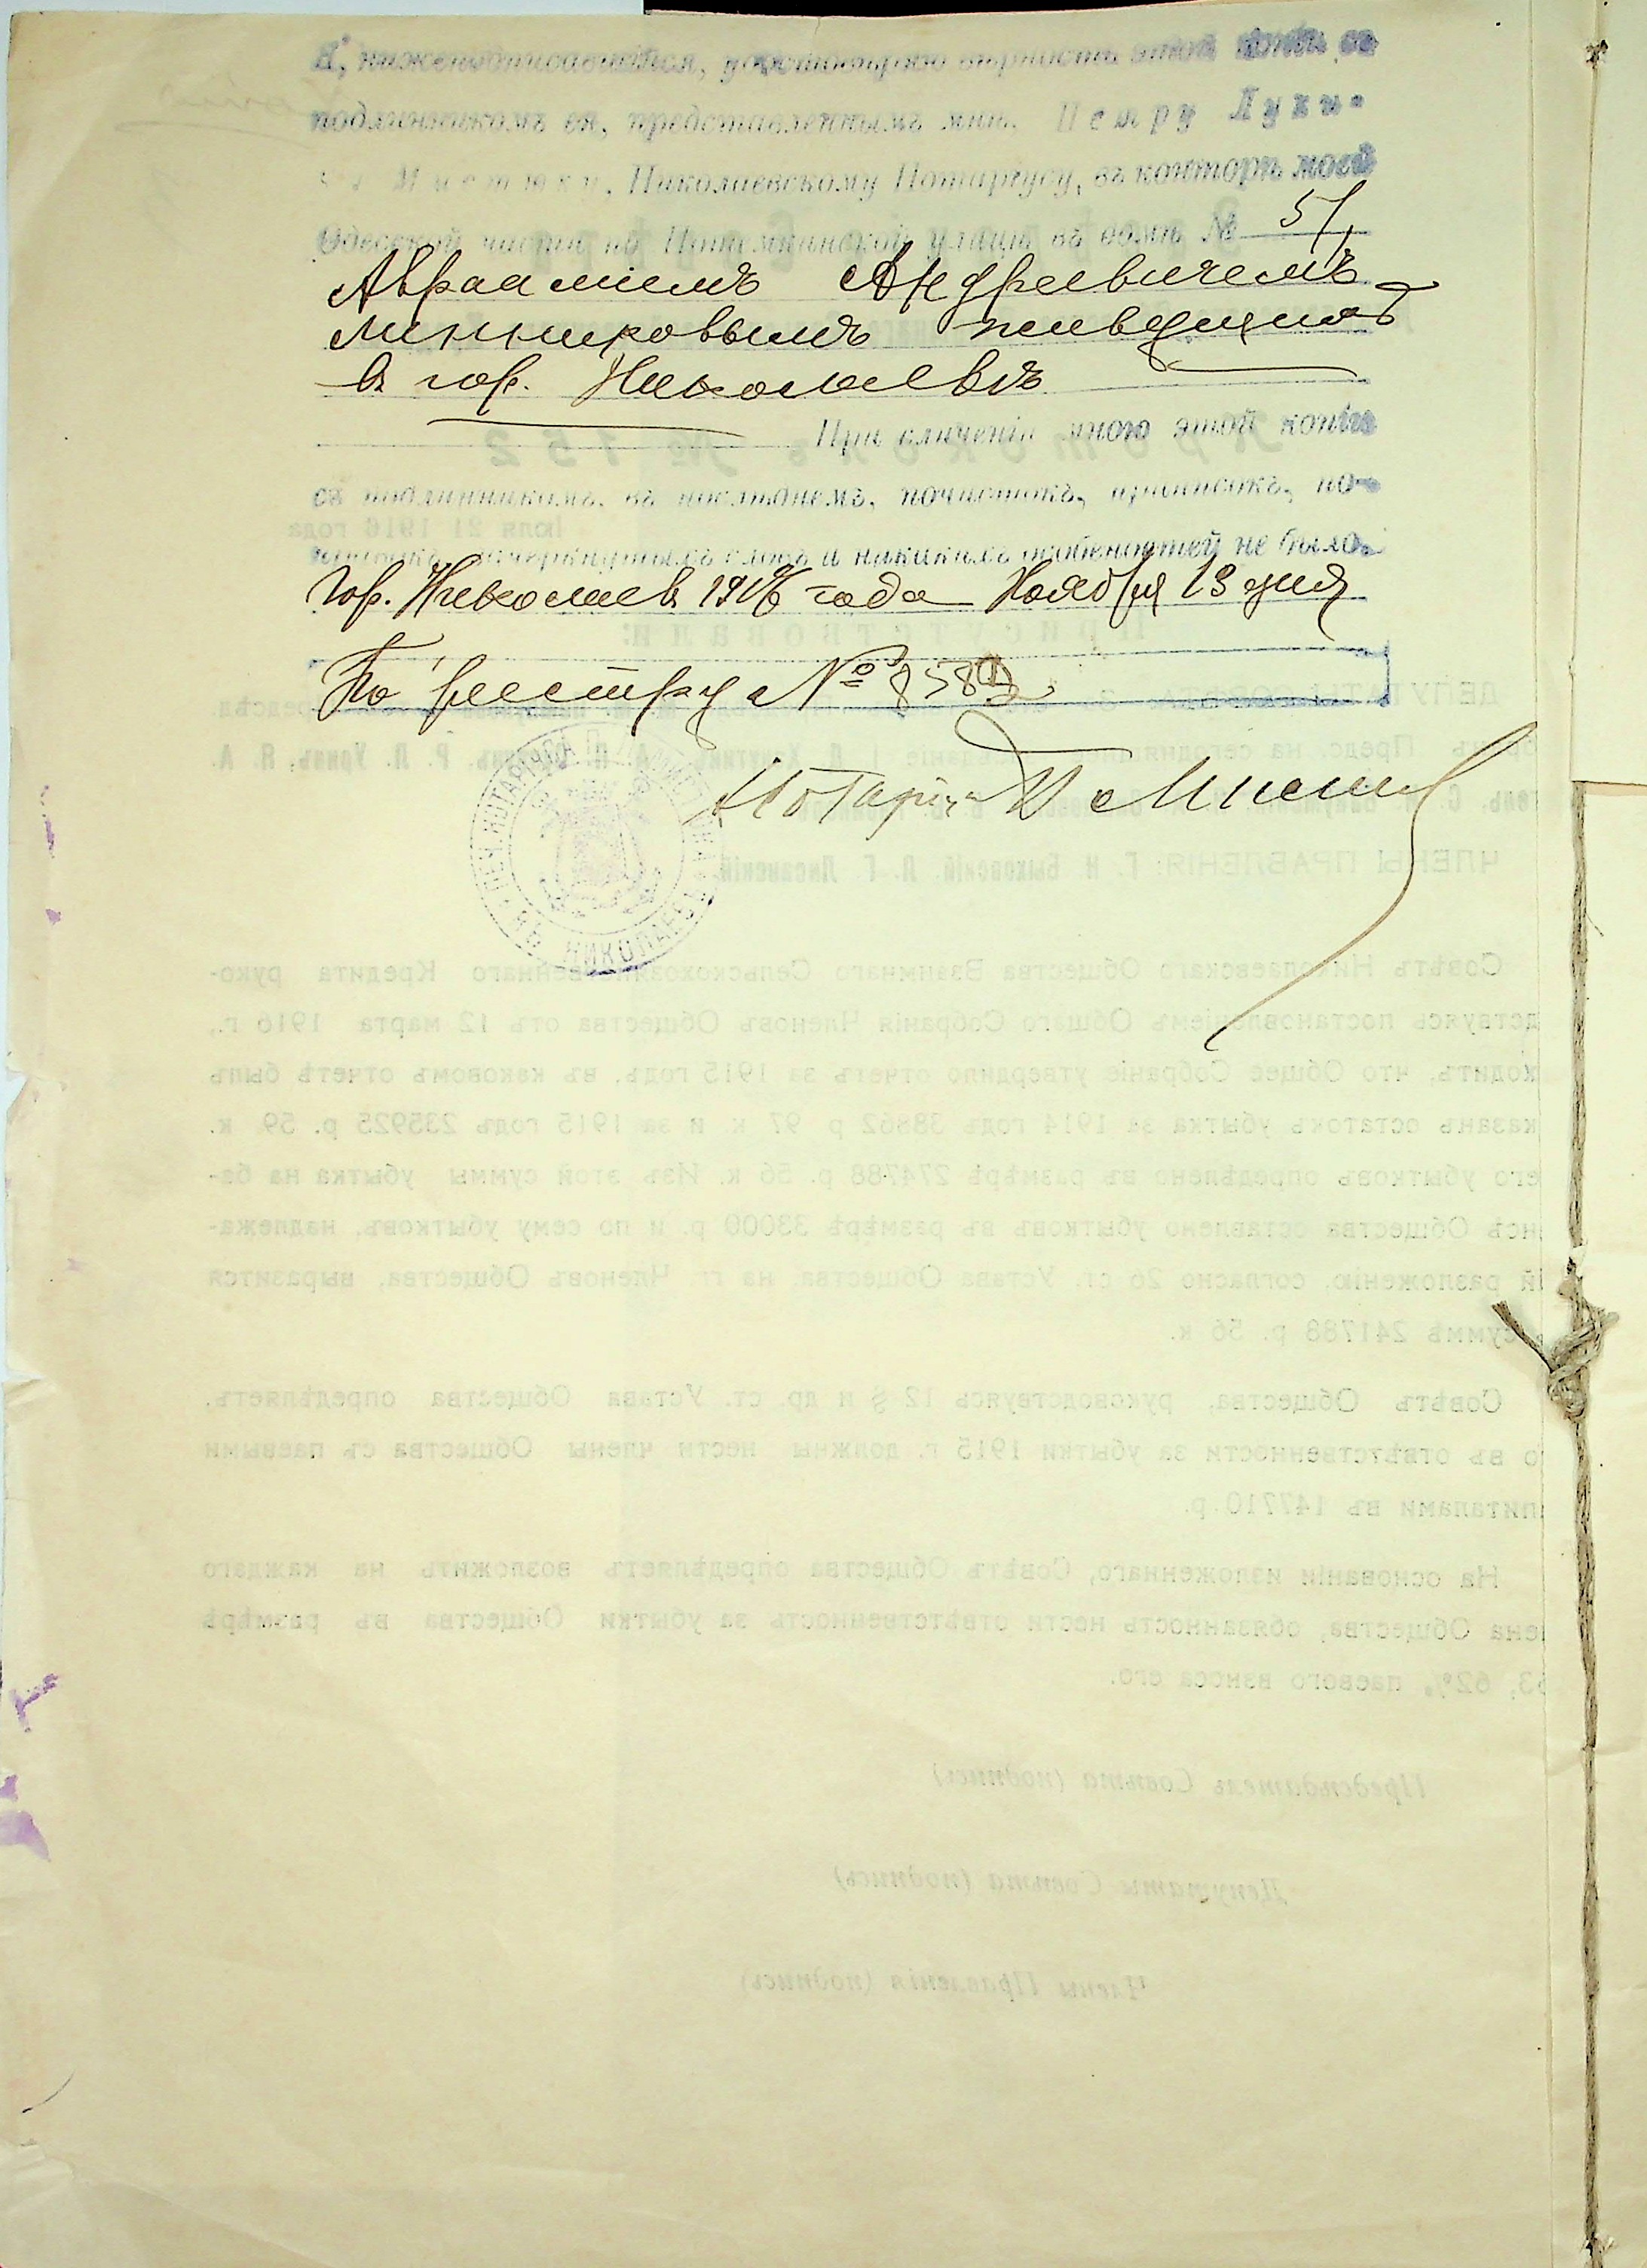 Я, нижеподписавшійся, удостовѣряю вѣрность этой копіи съ
подлинникомъ ея, представленнымъ мнѣ, Петру Луки-
Николаевскому Нотаріусу, въ конторѣ моей
Одесской части по Потемкинской улицѣ въ домѣ № 51,
Авраамiемъ Андреевичемъ
живущимъ
въ гор. Николаевѣ
При сличеніи мною этой копіи
съ подлинникомъ, въ послѣднемъ, почистокъ, приписокъ, по-
словъ и никакихъ особенностей не было.
Гор. Николаевъ 1916 года Ноября 13 дня
По реестру №
Нотаріусъ П Мистюк
НИКОЛАЕВ
Протоколъ № 152
Іюля 21 1916 года
ПРИСУТСТВОВАЛИ:
ДЕПУТАТЫ
Предс. на сегодняшнее засѣданіе Р. Л. Уринъ, Я. А.
ЧЛЕНЫ ПРАВЛЕНІЯ: Г. Н. Быховскій, Л. Г. Лисанскій
Совѣтъ Николаевскаго Общества Взаимнаго Сельскохозяйственнаго Кредита руко-
дствуясь постановленіемъ Общаго Собранія Членовъ Общества отъ 12 марта 1916 г.,
ходитъ, что Общее Собраніе утвердило отчетъ за 1915 годъ, въ каковомъ отчетѣ былъ
казанъ остатокъ убытка за 1914 годъ 38862 р 97 к и за 1915 годъ 235925 р. 59 к.
его убытковъ опредѣлено въ размѣрѣ 274788 р. 56 к. Изъ этой суммы убытка на ба-
нсѣ Общества оставлено убытковъ въ размѣрѣ 33000 р. и по сему убытковъ, надлежа-
й разложенію, согласно 26 ст. Устава Общества, на гг. Членовъ Общества, выразится
суммѣ 241788 р. 56 к.
Совѣтъ Общества, руководствуясь 12 § и др. ст. Устава Общества опредѣляетъ,
о въ отвѣтственности за убытки 1915 г. должны нести члены Общества съ паевыми
питалами въ 147710 р.
На основаніи изложеннаго, Совѣтъ Общества опредѣляетъ возложить на каждаго
ена Общества, обязанность нести отвѣтственность за убытки Общества въ размѣрѣ
3, 62% паевого взноса его.
Предсѣдатель Совѣта (подпись)
Депутаты Совѣта (подпись)
Члены Правленія (подпись)